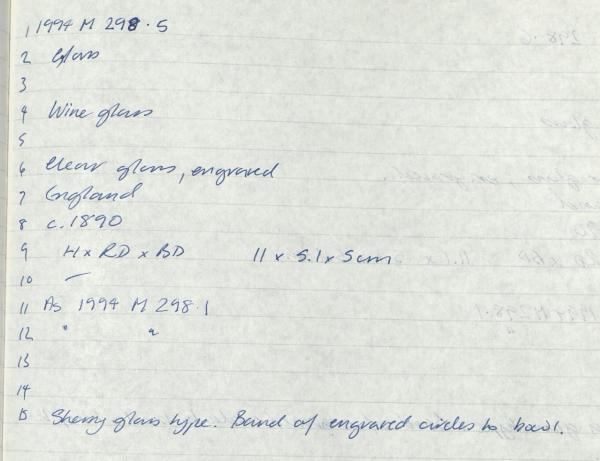 1 1994 M 298.5
2 Glass
3
4 Wine glass
5
6 Clear glass, engraved
7 England
8 c.1890
9 H x RD x BD 11 x 5.1 x 5cm
10 —
11 As 1994 M 298.1
12 " "
13
14
15 Sherry glass type. Band of engraved circles to bowl.